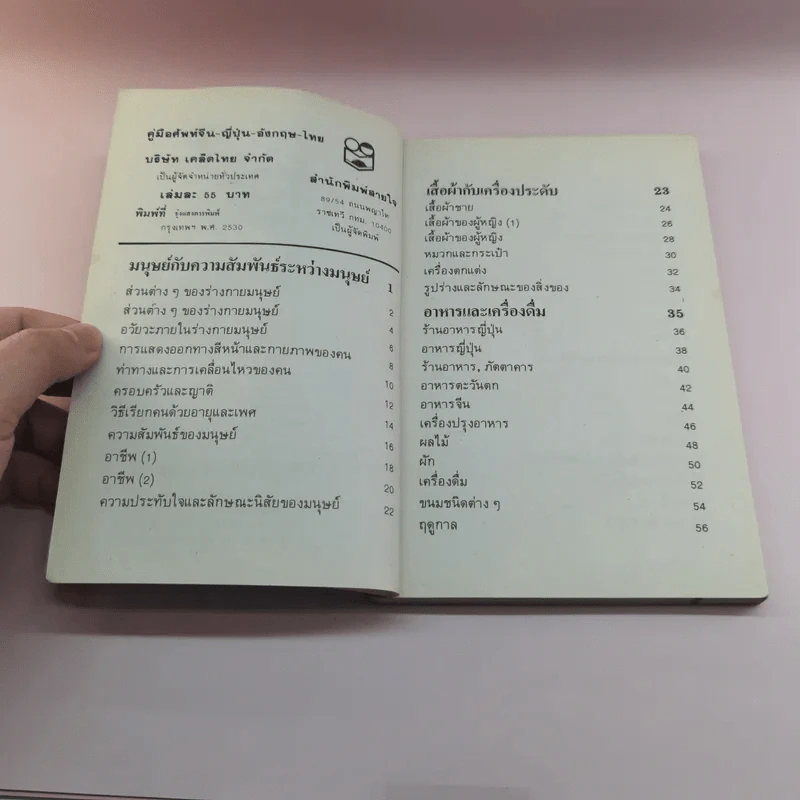 คู่มือศัพท์จีน-ญี่ปุ่น-อังกฤษ-ไทย
บริษัท เคล็ดไทย จำกัด
เป็นผู้จัดจำหน่ายทั่วประเทศ
เล่มละ 55 บาท
พิมพ์ที่ รุ่งแสงการพิมพ์
กรุงเทพฯ พ.ศ. 2530
สำนักพิมพ์สายใจ
89/54 ถนนพญาไท
ราชเทวี กทม. 10400
เป็นผู้จัดพิมพ์
มนุษย์กับความสัมพันธ์ระหว่างมนุษย์ 1
ส่วนต่าง ๆ ของร่างกายมนุษย์
ส่วนต่าง ๆ ของร่างกายมนุษย์ 2
อวัยวะภายในร่างกายมนุษย์ 4
การแสดงออกทางสีหน้าและกายภาพของคน 6
ท่าทางและการเคลื่อนไหวของคน 8
ครอบครัวและญาติ 10
วิธีเรียกคนด้วยอายุและเพศ 12
ความสัมพันธ์ของมนุษย์ 14
อาชีพ (1) 16
อาชีพ (2) 18
ความประทับใจและลักษณะนิสัยของมนุษย์ 20
22
เสื้อผ้ากับเครื่องประดับ 23
เสื้อผ้าชาย 24
เสื้อผ้าของผู้หญิง (1) 26
เสื้อผ้าของผู้หญิง 28
หมวกและกระเป๋า 30
เครื่องตกแต่ง 32
รูปร่างและลักษณะของสิ่งของ 34
อาหารและเครื่องดื่ม 35
ร้านอาหารญี่ปุ่น 36
อาหารญี่ปุ่น 38
ร้านอาหาร, ภัตตาคาร 40
อาหารตะวันตก 42
อาหารจีน 44
เครื่องปรุงอาหาร 46
ผลไม้ 48
ผัก 50
เครื่องดื่ม 52
ขนมชนิดต่าง ๆ 54
ฤดูกาล 56